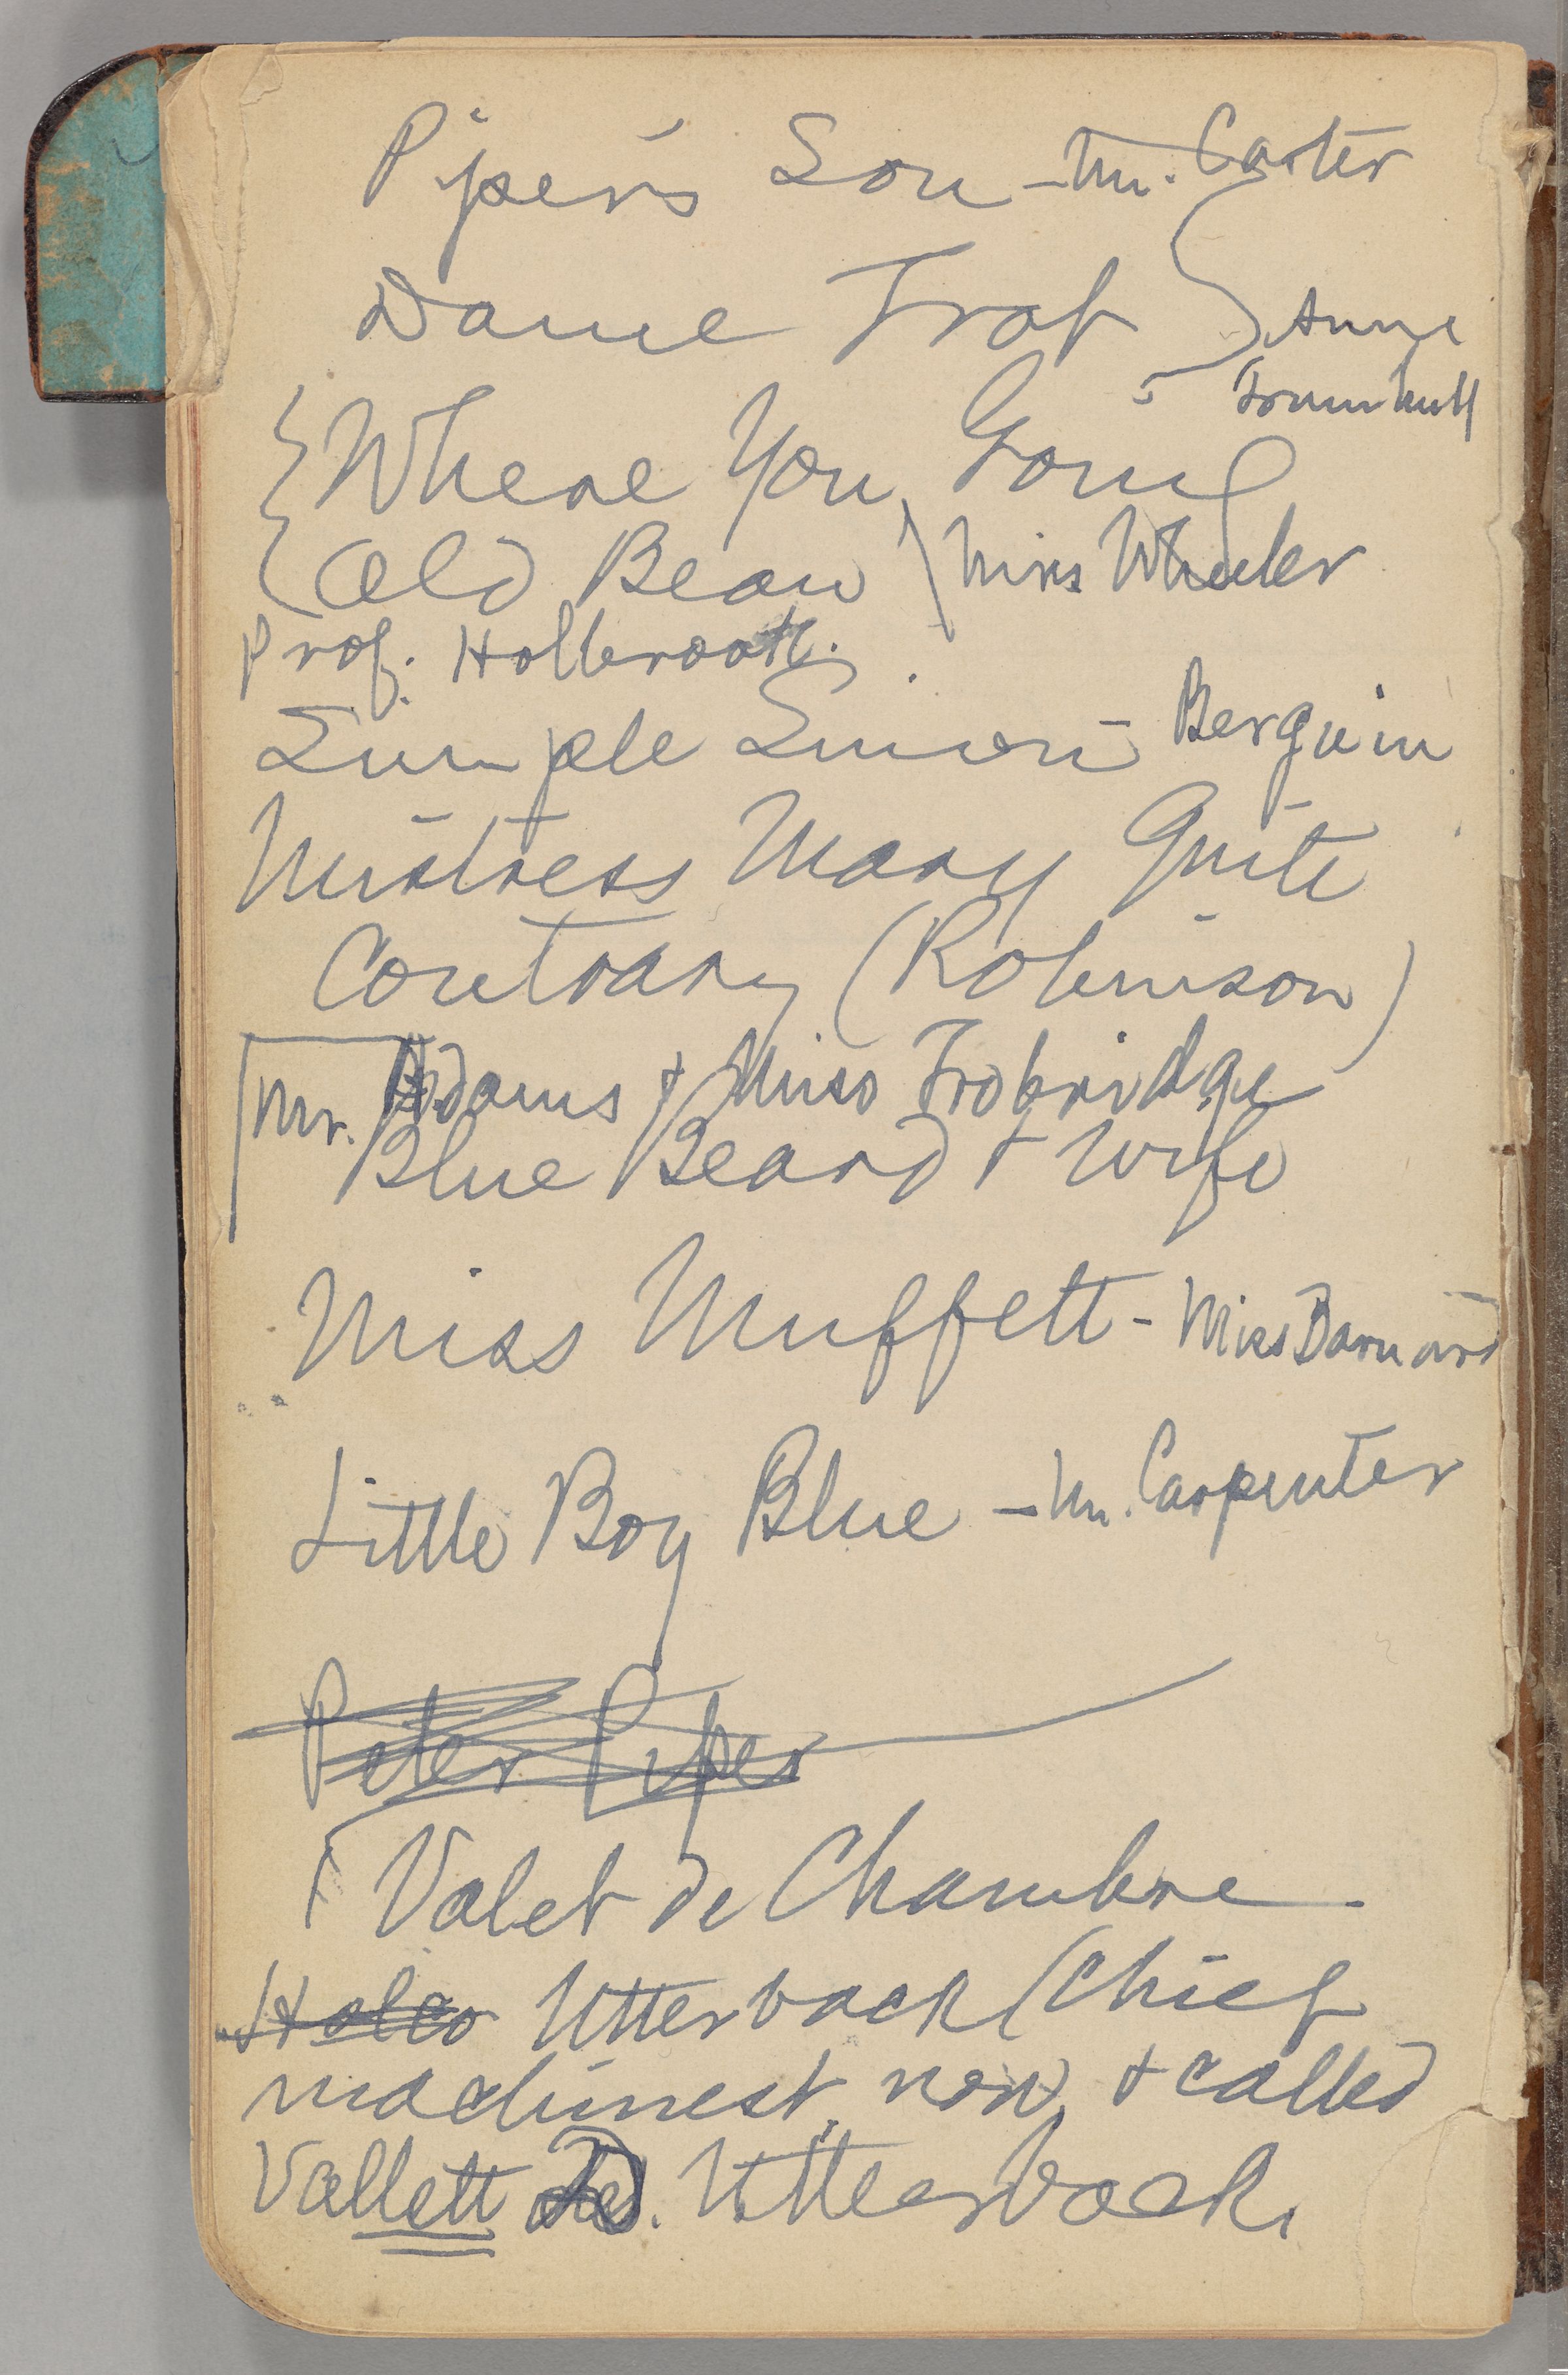 Piper's Son - Mr. Carter
Dame Trot } Anne
Trumbull
{ Where You Going
{ Old Beau ) Miss Wheeler
Prof. Holbrook.
Simple Simon - Berguin
Mistress Mary Quite
Contrary (Robinson)
Mr. Adams & Miss Trobridge
Blue Beard & Wife
Miss Muffett - Miss Barnard
Little Boy Blue - Mr. Carpenter
Peter Piper
Valet de Chambre
Utterback (Chief
machinest now & called
Vallett D. Utterback.